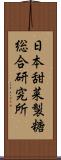 日本甜菜製糖
総合研究所